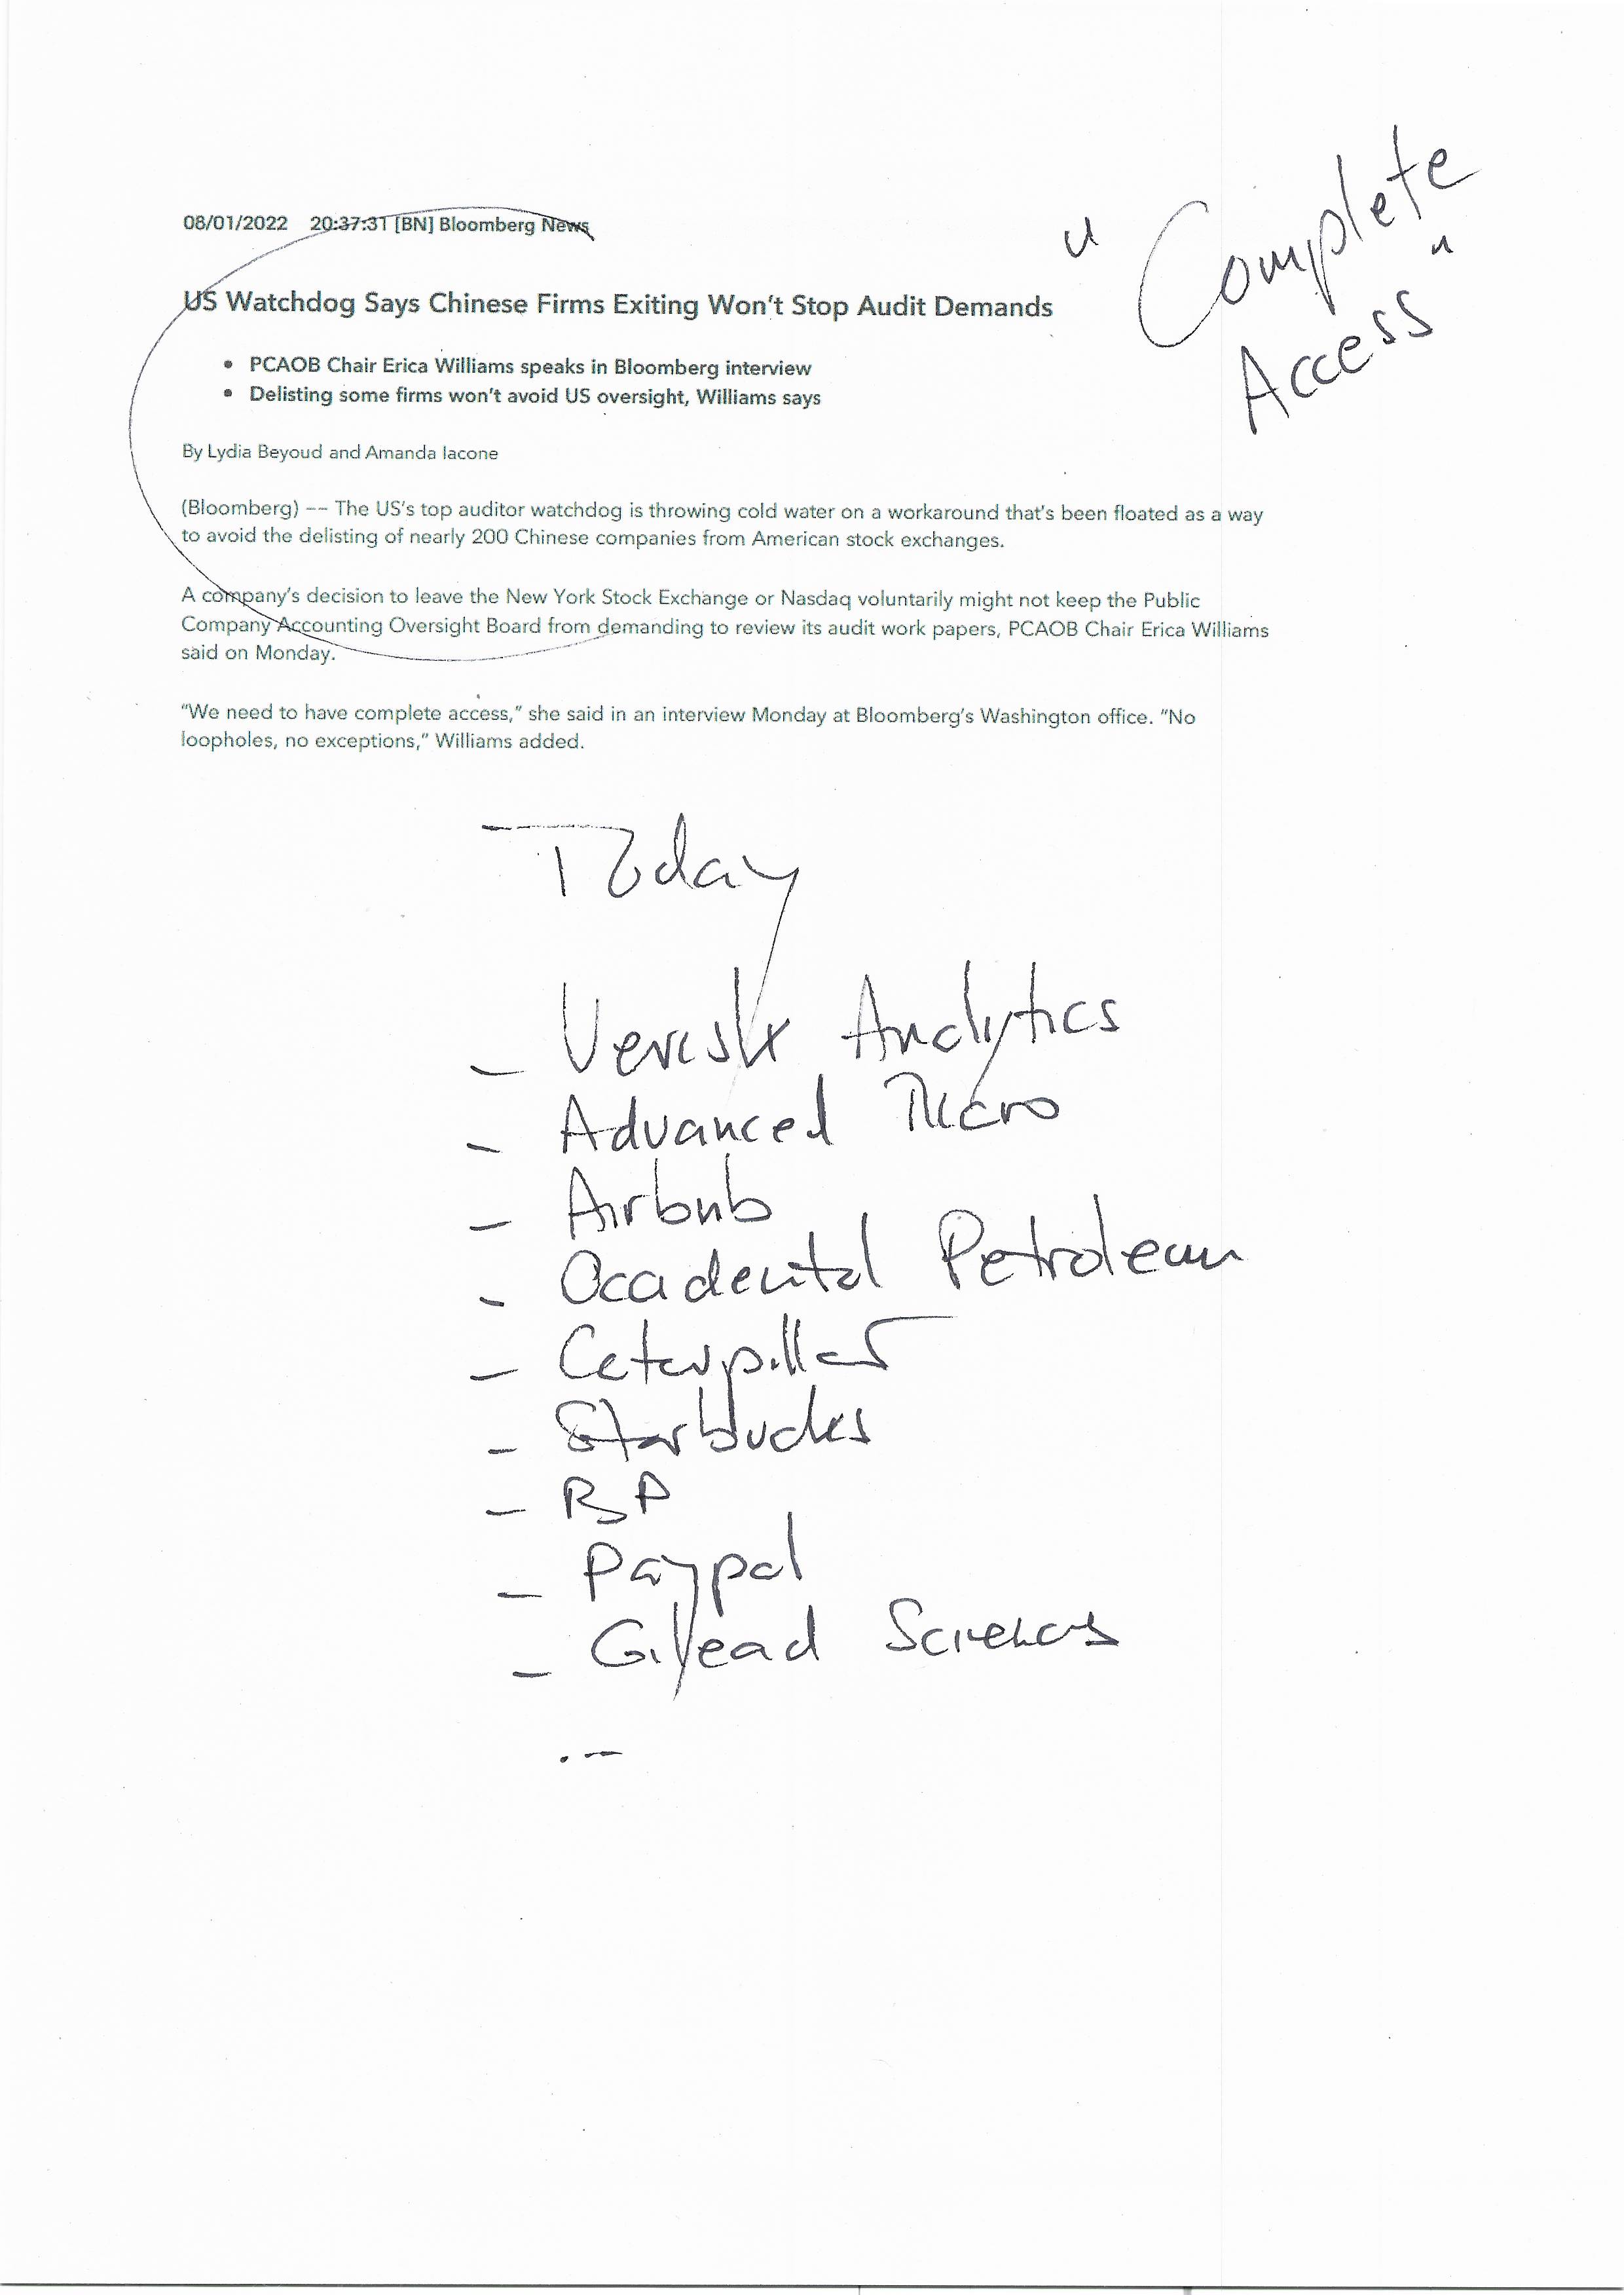 08/01/2022 20:37:31 [BN] Bloomberg News
"Complete
Access"
US Watchdog Says Chinese Firms Exiting Won't Stop Audit Demands
• PCAOB Chair Erica Williams speaks in Bloomberg interview
• Delisting some firms won't avoid US oversight, Williams says
By Lydia Beyoud and Amanda Iacone
(Bloomberg) -- The US's top auditor watchdog is throwing cold water on a workaround that's been floated as a way
to avoid the delisting of nearly 200 Chinese companies from American stock exchanges.
A company's decision to leave the New York Stock Exchange or Nasdaq voluntarily might not keep the Public
Company Accounting Oversight Board from demanding to review its audit work papers, PCAOB Chair Erica Williams
said on Monday.
"We need to have complete access," she said in an interview Monday at Bloomberg's Washington office. "No
loopholes, no exceptions," Williams added.
Today
- Verisk Analytics
- Advanced Micro
- Airbnb
- Occidental Petroleum
- Caterpillar
- Starbucks
- BP
- Paypal
- Gilead Sciences
...